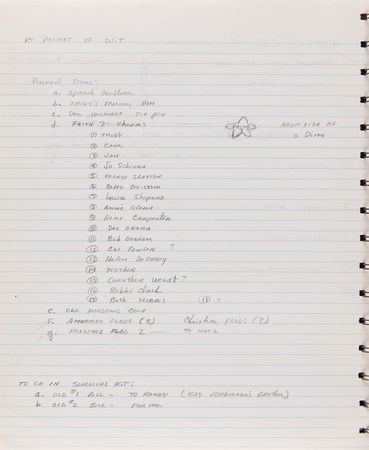 RT POCKET OF SUIT
Personal Items:
a. Spanish Doubloon
b. TRUDY'S MERCURY PIN
c. DON WILKINS TIE PIN
d. FAITH 7 Charms FAITH ABOUT SIZE OF
(1) TRUDY a Dime
(2) Cam
(3) JAN
(4) Jo Schirra
(5) MARGE SLAYTON
(6) Betty Grissom
(7) Louise Shepard
(8) ANNIE Glenn
(9) Rene Carpenter
(10) Dee OHARA
(11) Bob GRAHAM
(12) Cal Fowler ?
(13) Helen
(14) MOTHER
(15) Guenthere Wendt ?
(16) Bobbi Clark
(17) Beth MORRIS (18) ?
e. OLD MASONIC COIN
f. AMERICAN FLAGS (5) Christian FLAGS (2)
g. MASONIC FLAG 2 —— TO NAT'L
TO GO IN SURVIVAL KIT:
a. OLD $1 BILL - TO RANDY (KAY Brother)
b. OLD $2 BILL - FOR ME